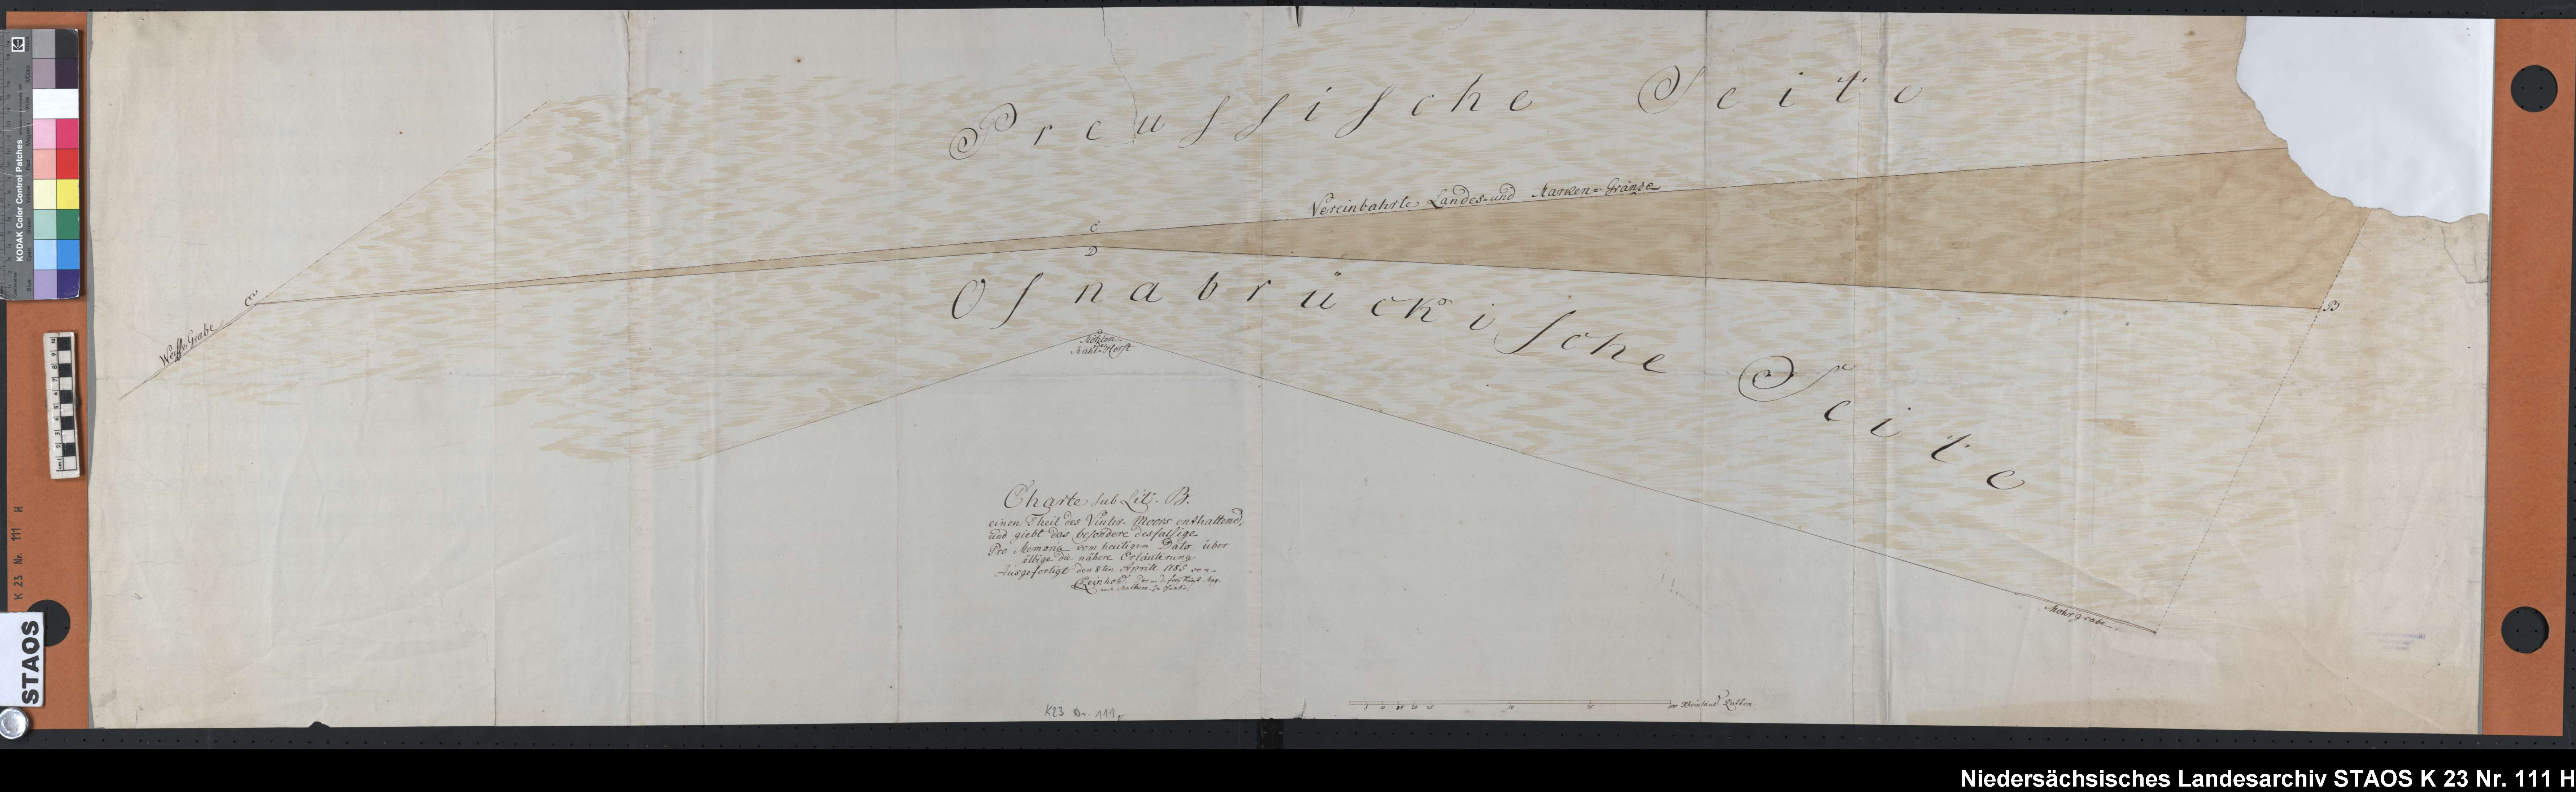 Preussische Seite
Vereinbahrte Landes- und Marken-Gränze
C
D
C
Weisse Grabe
Osnabrückische Seite
B
Charte sub Lit. B.
einen Theil des Vinter-Moors enthaltend,
und giebt das besondere desfalsige
Pro Memoria vom heutigen Dato über
selbige die nähere Erläuterung
Ausgefertigt den 8ten Aprill 1785 von
Reinhold
Mohrgrabe
Rheinländ. Ruthen.
K23 Nr. 111
KODAK Color Control Patches
K 23 Nr. 111 H
STAOS
Niedersächsisches Landesarchiv STAOS K 23 Nr. 111 H